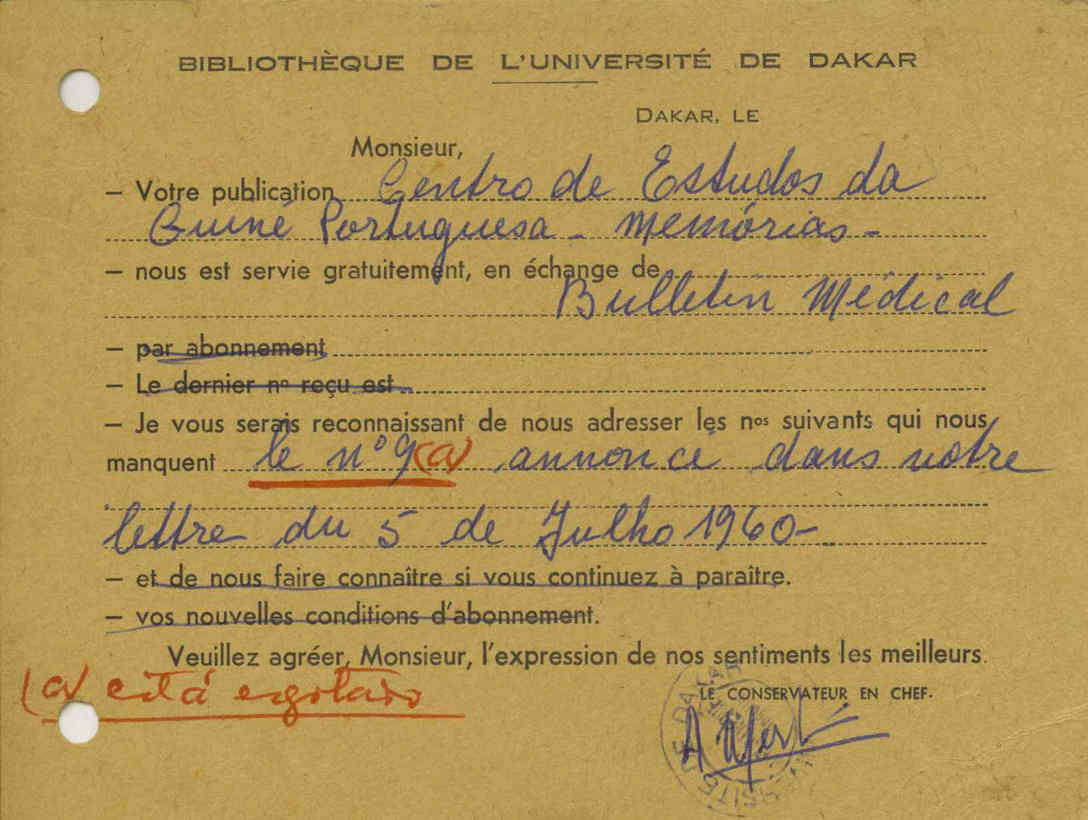 BIBLIOTHÈQUE DE L'UNIVERSITÉ DE DAKAR
DAKAR, LE
Monsieur,
– Votre publication Centro de Estudos da
Guiné Portuguesa - Memórias -
– nous est servie gratuitement, en échange de
Bulletin Médical
– par abonnement
– Le dernier nº reçu est
– Je vous serais reconnaissant de nous adresser les nos suivants qui nous
manquent le nº 9(a) annoncé dans votre
lettre du 5 de Julho 1960-
– et de nous faire connaître si vous continuez à paraître.
– vos nouvelles conditions d'abonnement.
Veuillez agréer, Monsieur, l'expression de nos sentiments les meilleurs.
(a) está esgotado
LE CONSERVATEUR EN CHEF.
DAKAR